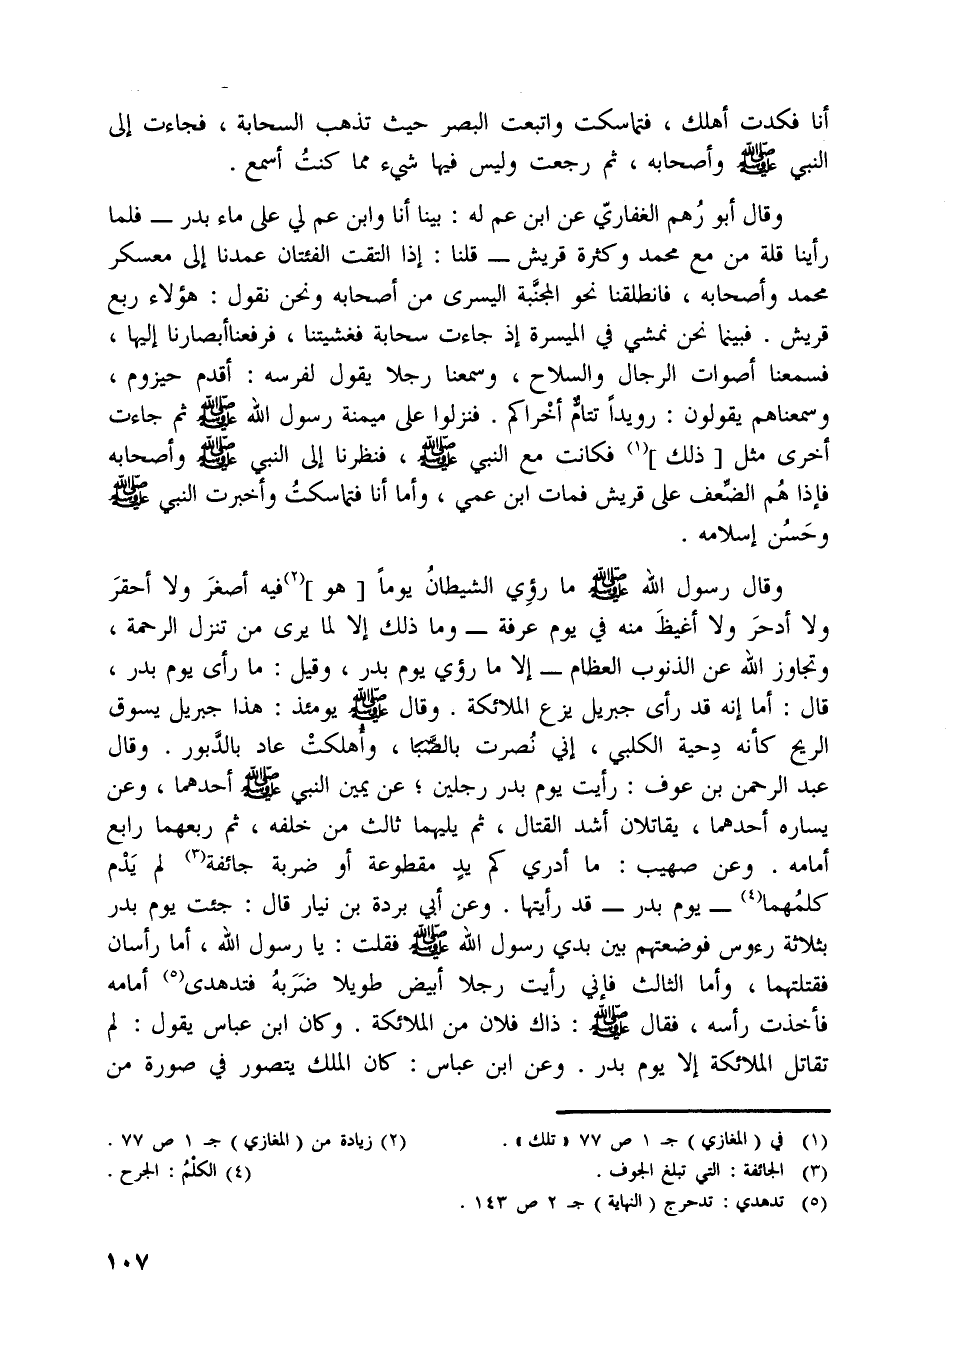 أنا فكدت أهلك ، فتماسكت واتبعت البصر حيث تذهب السحابة ، فجاءت إلى
النبي ﷺ وأصحابه ، ثم رجعت وليس فيها شيء مما كنتُ أسمع .
وقال أبو رُهم الغفاريّ عن ابن عم له : بينا أنا وابن عم لي على ماء بدر — فلما
رأينا قلة من مع محمد وكثرة قريش — قلنا : إذا التقت الفئتان عمدنا إلى معسكر
محمد وأصحابه ، فانطلقنا نحو المجنَّبة اليسرى من أصحابه ونحن نقول : هؤلاء ربع
قريش . فبينما نحن نمشي في الميسرة إذ جاءت سحابة فغشيتنا ، فرفعناأبصارنا إليها ،
فسمعنا أصوات الرجال والسلاح ، وسمعنا رجلا يقول لفرسه : أقدم حيزوم ،
وسمعناهم يقولون : رويداً تتامُّ أخْراكم . فنزلوا على ميمنة رسول الله ﷺ ثم جاءت
أخرى مثل [ ذلك ](١) فكانت مع النبي ﷺ ، فنظرنا إلى النبي ﷺ وأصحابه
فإذا هُم الضِّعف على قريش فمات ابن عمي ، وأما أنا فتماسكتُ وأخبرت النبي ﷺ
وحَسُن إسلامه .
وقال رسول الله ﷺ ما رؤي الشيطانُ يوماً [ هو ](٢)فيه أصغرَ ولا أحقرَ
ولا أدحرَ ولا أغيظَ منه في يوم عرفة — وما ذلك إلا لما يرى من تنزل الرحمة ،
وتجاوز الله عن الذنوب العظام — إلا ما رؤي يوم بدر ، وقيل : ما رأى يوم بدر ،
قال : أما إنه قد رأى جبريل يزع الملائكة . وقال ﷺ يومئذ : هذا جبريل يسوق
الريح كأنه دِحية الكلبي ، إني نُصرت بالصَّبَا ، وأُهلكتْ عاد بالدَّبور . وقال
عبد الرحمن بن عوف : رأيت يوم بدر رجلين ؛ عن يمين النبي ﷺ أحدهما ، وعن
يساره أحدهما ، يقاتلان أشد القتال ، ثم يليهما ثالث من خلفه ، ثم ربعهما رابع
أمامه . وعن صهيب : ما أدري كم يدٍ مقطوعة أو ضربة جائفة(٣) لم يَدْم
كلمُهما(٤) — يوم بدر — قد رأيتها . وعن أبي بردة بن نيار قال : جئت يوم بدر
بثلاثة رءوس فوضعتهم بين يدي رسول الله ﷺ فقلت : يا رسول الله ، أما رأسان
فقتلتهما ، وأما الثالث فإني رأيت رجلا أبيض طويلا ضَرَبهُ فتدهدى(٥) أمامه
فأخذت رأسه ، فقال ﷺ : ذاك فلان من الملائكة . وكان ابن عباس يقول : لم
تقاتل الملائكة إلا يوم بدر . وعن ابن عباس : كان الملك يتصور في صورة من
(١) في ( المغازي ) جـ ١ ص ٧٧ « تلك » . (٢) زيادة من ( المغازي ) جـ ١ ص ٧٧ .
(٣) الجائفة : التي تبلغ الجوف . (٤) الكلْمُ : الجرح .
(٥) تدهدي : تدحرج ( النهاية ) جـ ٢ ص ١٤٣ .
١٠٧